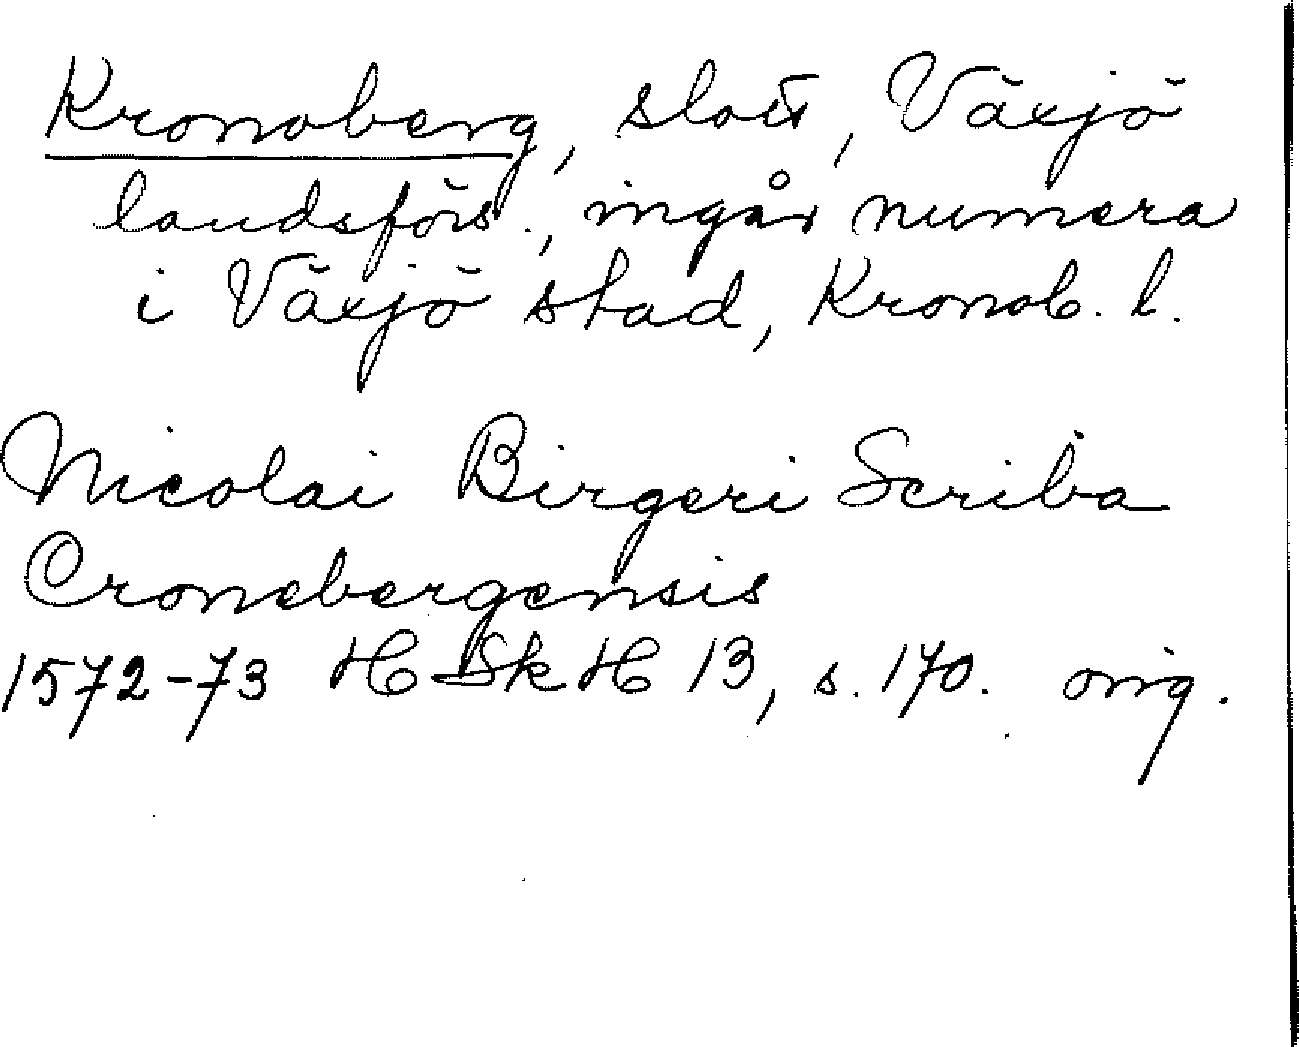 Kronoberg, slott, Växjö
landsförs., ingår numera
i Växjö stad, Kronob. l.
Nicolai Birgeri Scriba
Cronebergensis
1572-73 HSkH 13, s. 170. orig.